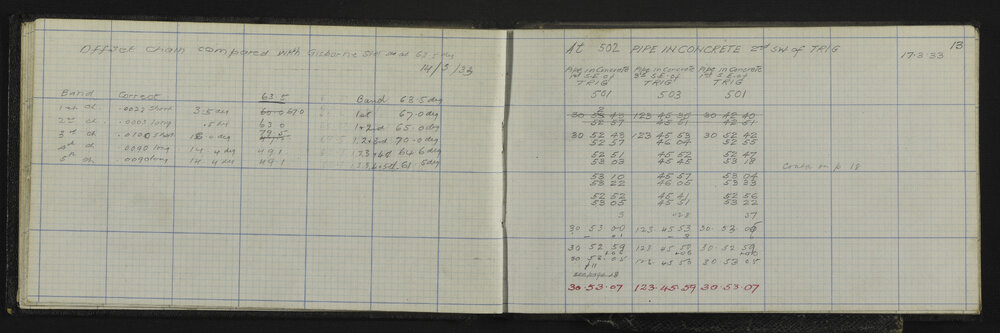 Offset Chain compared with Gisborne Std
14/3/33
Band Correct. 63.5 Band 63.5 deg
1st ch .0022 short 3.5 deg 60.0 67.0 1st 67.0 deg
2nd ch .0003 long .5 63.0 1+2nd 65.0 deg
3rd ch .0100 short 16.0 deg 79.5 1,2+3rd 70.0 deg
4th ch 0090 long 14.4 deg 49.1 1,2,3+4th 64.6 deg
5th ch .0090 long 14.4 deg 49.1 61.5 deg
13
At 502 PIPE IN CONCRETE 2nd SW of TRIG
17.3.33
Pipe in Concrete Pipe in Concrete Pipe in Concrete
1st S.E. of 3rd S.E. of 1st S.E. of
TRIG TRIG TRIG
501 503 501
30 52 43 123 45 35 30 42 40
52 57 45 51 42 51
30 52 43 123 45 53 30 52 42
52 57 46 04 52 55
52 51 45 52 52 47
53 03 45 45 53 18
Contd on p 18
53 10 45 57 53 04
53 22 46 05 53 33
52 52 45 41 52 56
53 05 45 51 53 22
3 428 37
30 53 00 123 45 53 30 53 05
30 52 59 123 45 50 30 52 59
30 53 05 123 45 53 30 53 05
see page 18
30.53.07 123.45.59 30.53.07